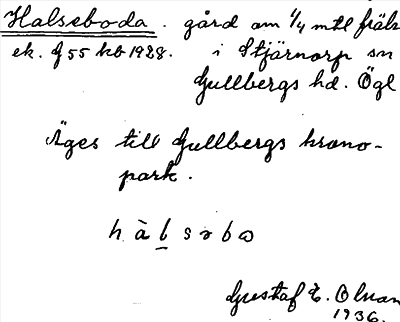 Halseboda. gård om 1/4 mtl fräls
ek. f 55 kb 1928. i Stjärnorp sn
Gullbergs hd. Ögl
Äges till Gullbergs krono-
park.
h à l s ə b ω
Gustaf E. Olman
1936.